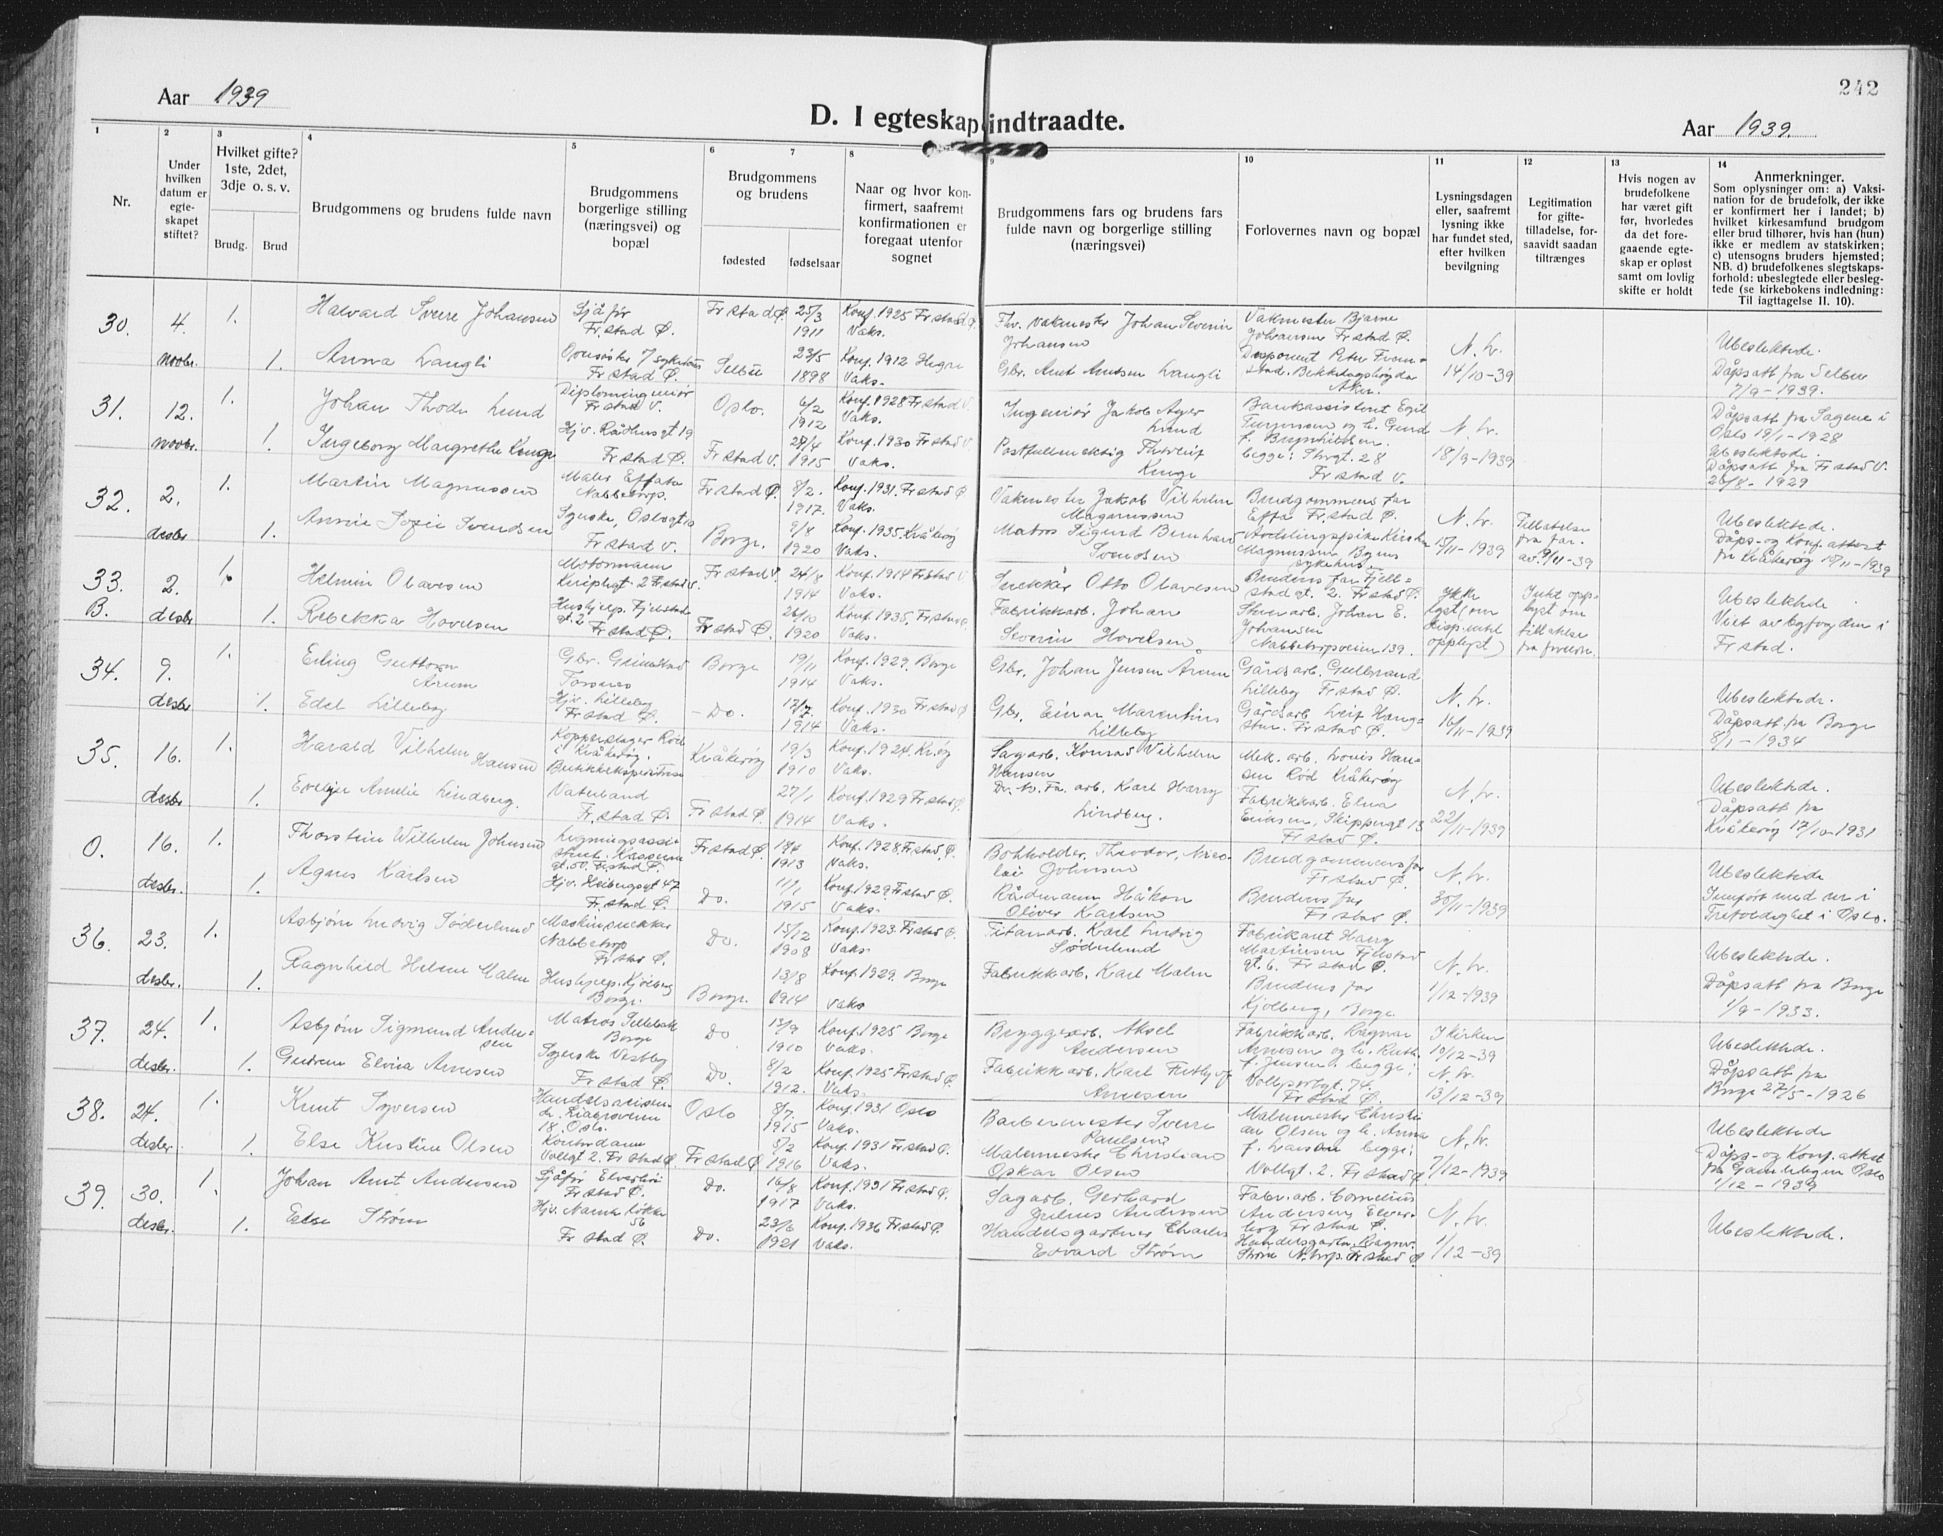 242
Aar 1939
D. I egteskap indtraadte.
Aar 1939.
1
Nr.
2
Under hvilken datum er egte-skapet stiftet?
3
Hvilket gifte? 1ste, 2det, 3dje o. s. v.
Brudg.
Brud
4
Brudgommens og brudens fulde navn
5
Brudgommens borgerlige stilling (næringsvei) og bopæl
6
7
Brudgommens og brudens
fødested
fødselsaar
8
Naar og hvor kon-firmert, saafremt konfirmationen er foregaat utenfor sognet
9
Brudgommens fars og brudens fars fulde navn og borgerlige stilling (næringsvei)
10
Forlovernes navn og bopæl
11
Lysningsdagen eller, saafremt lysning ikke har fundet sted, efter hvilken bevilgning
12
Legitimation for gifte-tilladelse, for-saavidt saadan tiltrænges
13
Hvis nogen av brudefolkene har været gift før, hvorledes da det fore-gaaende egte-skap er opløst samt om lovlig skifte er holdt
14
Anmerkninger.
Som oplysninger om: a) Vaksi-nation for de brudefolk, der ikke er konfirmert her i landet; b) hvilket kirkesamfund brudgom eller brud tilhører, hvis han (hun) ikke er medlem av statskirken; c) utensogns bruders hjemsted; NB. d) brudefolkenes slegtskaps-forhold: ubeslegtede eller besleg-tede (se kirkebokens indledning: Til iagttagelse II. 10).
30. 4. novbr. 1. Halvard Sverre Johansen Sjåfør Fr.stad Ø. Fr.stad Ø. 25/3 1911 Konf. 1925 Fr.stad Ø. Vaks. Fhv. vakmester Johan Severin Johansen Vakmester Bjarne Johansen Fr.stad Ø.
1. Anna Langli Fr.stad Ø. Selbu 23/5 1898 Konf. 1912 Hegra Vaks. Gbr. Arnt Arntsen Langli Disponent Peter N. Lv. 14/10-39 Ubeslektede. Dåpsatt fra Selbu 7/9-1939.
31. 12. novbr. 1. Johan Thode Lund Diplomingeniør Fr.stad V. Oslo. 6/2 1912 Konf. 1928 Fr.stad V. Vaks. Ingeniør Jakob Lund Bankassistent Egil
1. Ingeborg Margrethe Kenge Hjv. Rådhusgt 19 Fr.stad Ø. Fr.stad V. 1915 Konf. 1930 Fr.stad V Vaks. Postfullmektig Kenge begge: Strgt. 28 Fr.stad V. N. Lv. 18/9-1939 Dåpsatt fra Sagene i Oslo 19/1-1928 Ubeslektede. Dåpsatt fra Fr.stad V. 1929
32. 2. desbr. 1. Martin Magnussen Maler Nabbetorp. Fr.stad Ø. 8/2. 1917. Konf. 1931 Fr.stad Ø Vaks. Vakmester Jakob Vilhelm Magnussen Brudgommens far Fr.stad Ø.
1. Annie Sofie Svendsen Syerske, Oslogt Fr.stad V. Borge. 9/4 1920 Konf. 1935 Kråkerøy Vaks. Matros Sigurd Bernhard Svendsen Magnussen Byens sykehus. N. Lv. 15/11-1939 Tillatelse fra far. av 9/11-39 Ubeslektede. Dåps- og konf.attest fra Kråkerøy 1939
33. B. 2. desbr. 1. Helmin Olavesen Motormann Fr.stad V. Fr.stad V. 24/8 1914 Konf. 1914 Fr.stad V Vaks. Otto Olavesen Brudens far Fr.stad Ø.
1. Rebekka Hovelsen Hushjelp. Fr.stad Ø. Fr.stad Ø. 26/10 1920 Konf. 1935. Fr.stad Ø. Vaks. Fabrikkarb. Johan Severin Hovelsen. Johan E. Johansen Nabbetorpveien 139. Ikke lyst (om opplyst) Intet opp-lyst om tillatelse fra foreldre. Ubeslektede. Viet av byfogden i Fr.stad.
34. 9. desbr. 1. Erling Guttorm Arum Gbr. Torsnes Borge 19/11 1914 Konf. 1929. Borge Vaks. Gbr. Johan Jensen Arum Gårdsarb. Gulbrand Lilleby Fr.stad Ø.
1. Edel Lilleby Hjv. Lilleby Fr.stad Ø. - Do. 1914 Konf. 1930 Fr.stad Ø Vaks. Gbr. Einar Marentius Lilleby Gårdsarb. Leif Fr.stad Ø. N. Lv. 16/11-1939 Ubeslektede. Dåpsatt. fra Borge 8/1-1934
35. 16. desbr. 1. Harald Vilhelm Hansen Kopperslager Rød i Kråkerøy. Kråkerøy 19/3 1910 Konf. 1924. Kr.øy Vaks. Sagarb. Konrad Vilhelm Hansen Mek. arb. Louis Han-sen Rød Kråkerøy
1. Amelie Lindberg. Vaterland Fr.stad Ø. Fr.stad Ø. 27/1 1914 Konf. 1929 Fr.stad Ø. Vaks. arb. Karl Harry Lindberg. Fabrikkarb. Elna Eriksen, Skippergt 13 Fr.stad Ø. N. Lv. 22/11-1939 Ubeslektede. Dåpsatt fra Kråkerøy 17/10-1931
O. 16. desbr. 1. Thorstein Wilhelm Johnsen Fr.stad Ø. Fr.stad Ø. 1913 Konf. 1928. Fr.stad. Ø. Vaks. Bokholder Theodor Nico-lai Johnsen Brudgommens far Fr.stad Ø.
1. Agnes Karlsen Hjv. Heibergsgt 47 Fr.stad Ø. Do. 11/1 1915 Konf. 1929 Fr.stad Ø. Vaks. Rådmann Håkon Oliver Karlsen Brudens far Fr.stad Ø. N. Lv. 30/11-1939 Ubeslektede Innført med nr i Trefoldighet i Oslo.
36. 23. desbr. 1. Asbjørn Ludvig Søderlund Maskinsnekker Nabbetorp Fr.stad Ø. Do. 15/12 1908 Konf. 1923 Fr.stad Ø. Vaks. Titanarb. Karl Ludvig Søderlund Fabrikant Harry Martinsen Fjelstad gt. 6. Fr.stad Ø.
1. Ragnhild Helene Malm Hushjelp. Kjølberg Borge. Borge. 13/8 1914 Konf. 1929. Borge Vaks Fabrikkarb. Karl Malm Brudens far Kjølberg, Borge N. Lv. 1/12-1939 Ubeslektede. Dåpsatt fra Borge 1/9-1933.
37. 24. desbr. 1. Asbjørn Sigmund Ander-sen Matros Sellebakk Borge Do 13/7 1910 Konf. 1925 Borge Vaks. Bryggearb. Aksel Andersen Fabrikkarb. Ragnar Arnesen og h. Ruth
1. Gudrun Elvira Arnesen Syerske Vestby Fr.stad Ø. Do. 8/2 1912. Konf. 1925 Fr.stad Ø. Vaks. Fabrikkarb. Karl Arnesen f. Jensen. begge: Voldportgt. 74. Fr.stad Ø. I kirken 10/12-39 N. Lv. 13/12-39 Ubeslektede. Dåpsatt fra Borge 27/5-1926
38. 24. desbr. 1. Knut Syversen Handelsreisen-de. 18. Oslo. Oslo 8/7. 1915 Konf. 1931 Oslo Vaks. Barbermester Sverre Paulsen Malermester Christi-an Olsen og h. Anna
1. Else Kristine Olsen Kontordame Vollgt 2. Fr.stad Ø. Fr.stad Ø 5/2 1916 Konf. 1931 Fr.stad Ø. Vaks. Malermester Christian Oskar Olsen f. Larsen begge: Vollgt. 2. Fr.stad Ø N. Lv. 7/12-1939 Ubeslektede Dåps- og konf. attest fra Gamlebyen Oslo 1/12-1939
39. 30. desbr. 1. Johan Arnt Andersen Sjåfør Fr.stad Ø. Do. 16/8 1917 Konf. 1931 Fr.stad Ø. Vaks. Sagarb. Gerhard Julius Andersen Fabr.arb. Cornelius Andersen, Fr.stad Ø.
1. Else Strøm Hjv. Fr.stad Ø. Do. 23/6 1921 Konf. 1936 Fr.stad Ø. Vaks. Handelsgartner Charles Edvard Strøm Handelsgartn. Ragnv. Strøm Fr.stad Ø. N. Lv. 1/12-39 Ubeslektede.